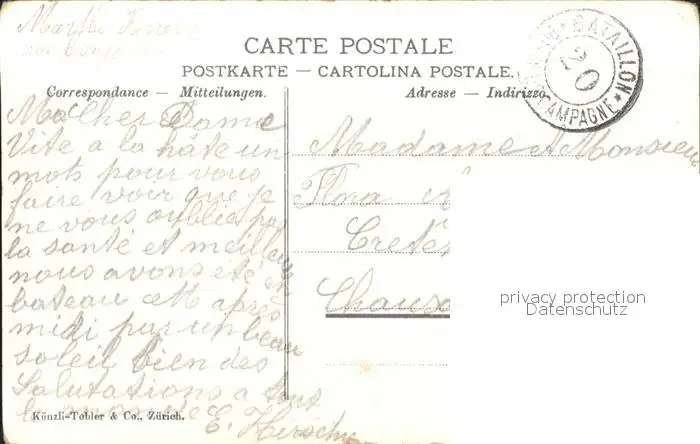 CARTE POSTALE
POSTKARTE — CARTOLINA POSTALE.
Correspondance — Mitteilungen.
Adresse — Indirizzo
BATAILLON
20
CAMPAGNE
Ma Cher Dame
Vite a la hâte un
mots pour vous
faire voir que je
ne vous oublie pas
la santé et meilleur
nous avons été en
bateau cett après
midi par un beau
soleil bien des
Salutations a tous
E.
Madame et Monsieur
Flora
Cretê
Chaux
privacy protection
Datenschutz
Künzli-Tobler & Co., Zürich.